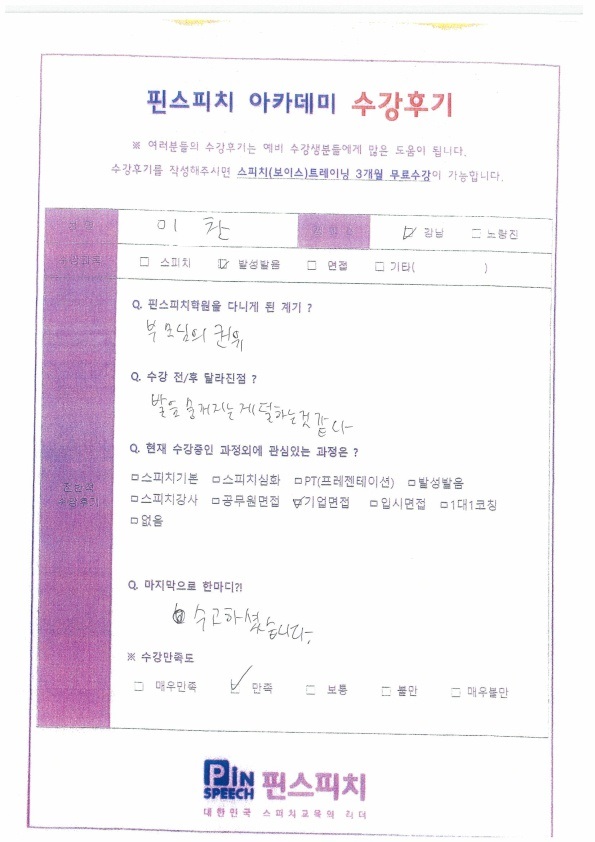 핀스피치 아카데미 수강후기
※ 여러분들의 수강후기는 예비 수강생분들에게 많은 도움이 됩니다.
수강후기를 작성해주시면 스피치(보이스)트레이닝 3개월 무료수강이 가능합니다.
이 찬 ☑ 강남 □ 노량진
수강과목 □ 스피치 ☑ 발성발음 □ 면접 □ 기타( )
Q. 핀스피치학원을 다니게 된 계기 ?
부모님의 권유
Q. 수강 전/후 달라진점 ?
발음 뭉개지는게 덜하는것 같다
Q. 현재 수강중인 과정외에 관심있는 과정은 ?
□스피치기본 □스피치심화 □PT(프레젠테이션) □발성발음
□스피치강사 □공무원면접 ☑기업면접 □입시면접 □1대1코칭
□없음
종합적
수강후기
Q. 마지막으로 한마디?!
수고하셨습니다.
※ 수강만족도
□ 매우만족 ☑ 만족 □ 보통 □ 불만 □ 매우불만
PiN SPEECH 핀스피치
대한민국 스피치교육의 리더